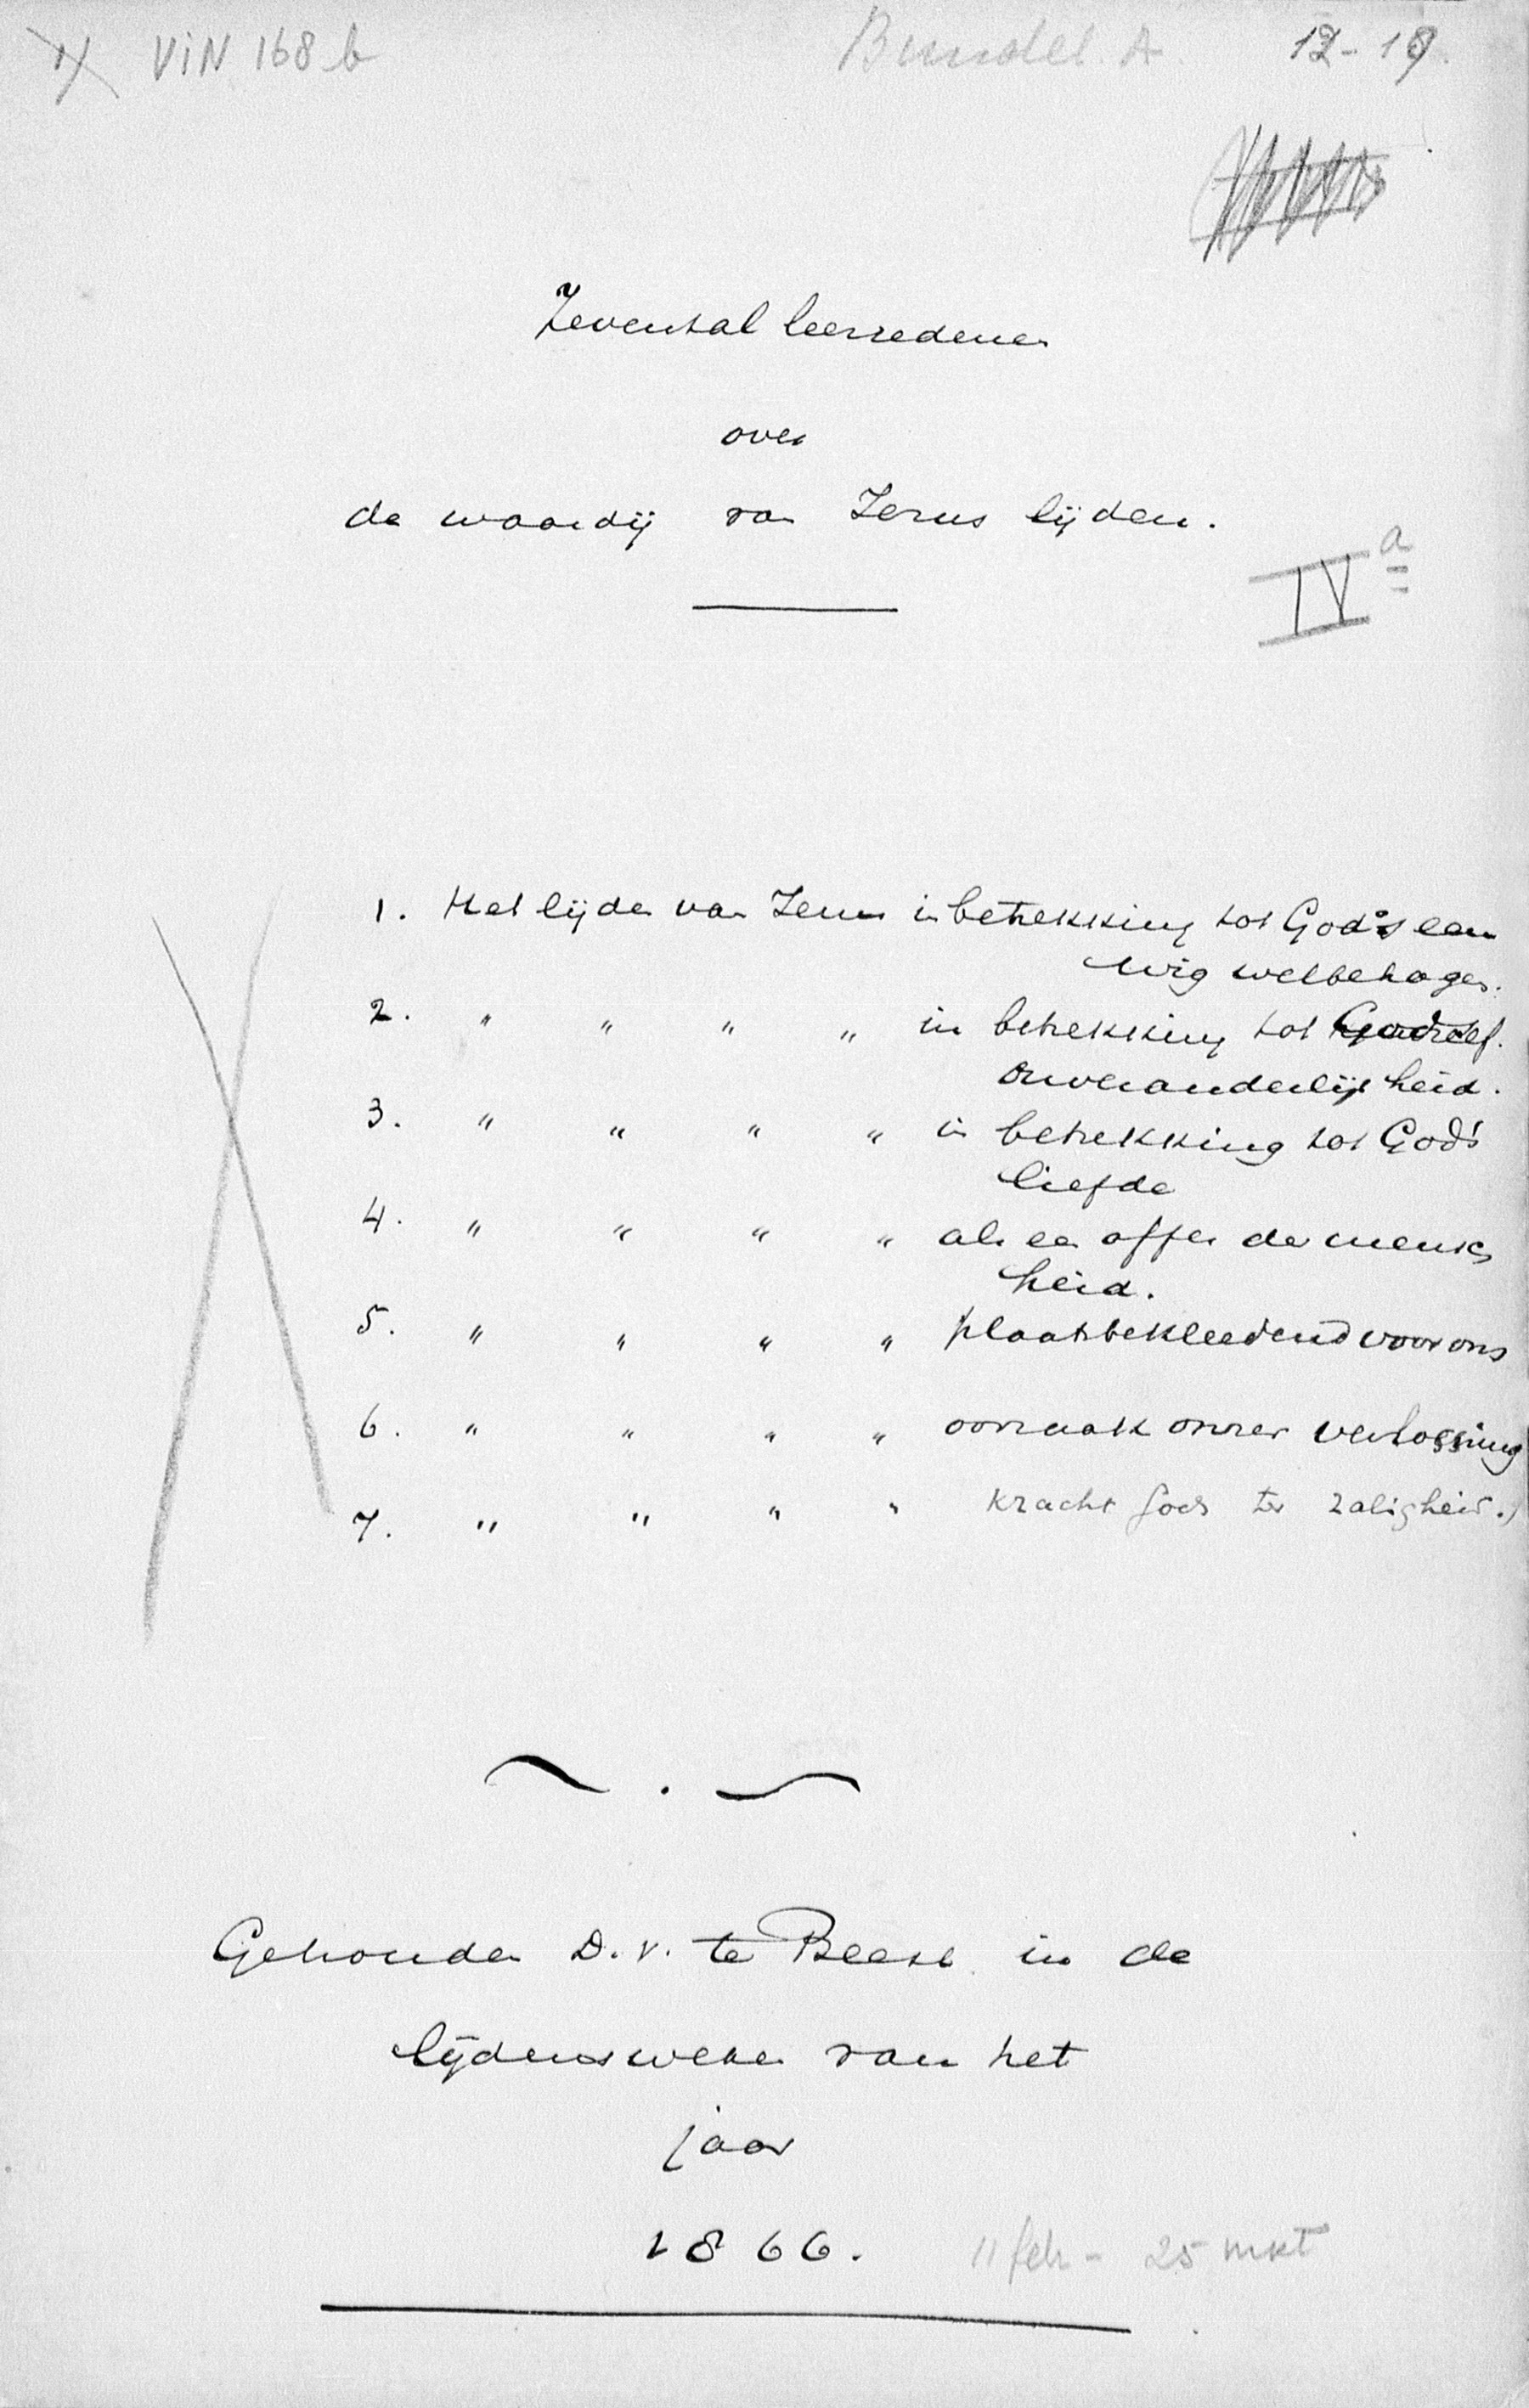 1) VIN 168 b Bundel. A. 12-18.
Zevental leerredenen
over
de waardij van Jezus lijden.
IV a
1. Het lijden van Jezus in betrekking tot God's eeu
wig welbehagen.
2. " " " " in betrekking tot Gods
onveranderlijkheid.
3. " " " " in betrekking tot God's
liefde
4. " " " " als een offer der mensch
heid.
5. " " " " plaatsbekleedend voor ons
6. " " " " oorzaak onzer verlossing
7. " " " " kracht Gods ter zaligheid.)
Gehouden D.v. te Beesd in de
lijdensweken van het
jaar
1866. 11 feb - 25 mrt